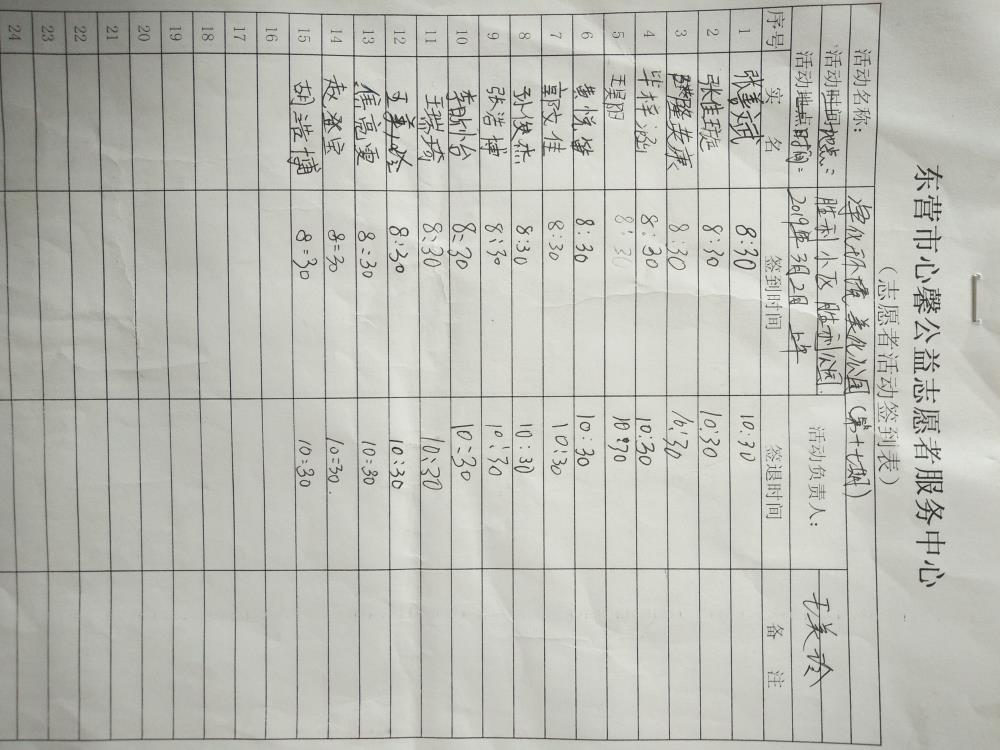 东营市心馨公益志愿者服务中心
（志愿者活动签到表）
活动名称： 净化环境 美化公园（第十七期）
活动时间地点： 胜利小区 胜利公园 活动负责人： 王美玲
活动地点时间： 2019年3月2日 上午
序号 实 名 签到时间 签退时间 备 注
1 8:30 10:30
2 张佳琁 8:30 10:30
3 8:30 10:30
4 毕梓涵 8:30 10:30
5 王昊阳 8:30 10:30
6 黄悦 8:30 10:30
7 郭政佳 8:30 10:30
8 孙俊杰 8:30 10:30
9 张浩博 8:30 10:30
10 8:30 10:30
11 王瑞琦 8:30 10:30
12 王美玲 8:30 10:30
13 焦高雯 8:30 10:30
14 赵登宝 8:30 10:30
15 胡浩博 8:30 10:30
16
17
18
19
20
21
22
23
24